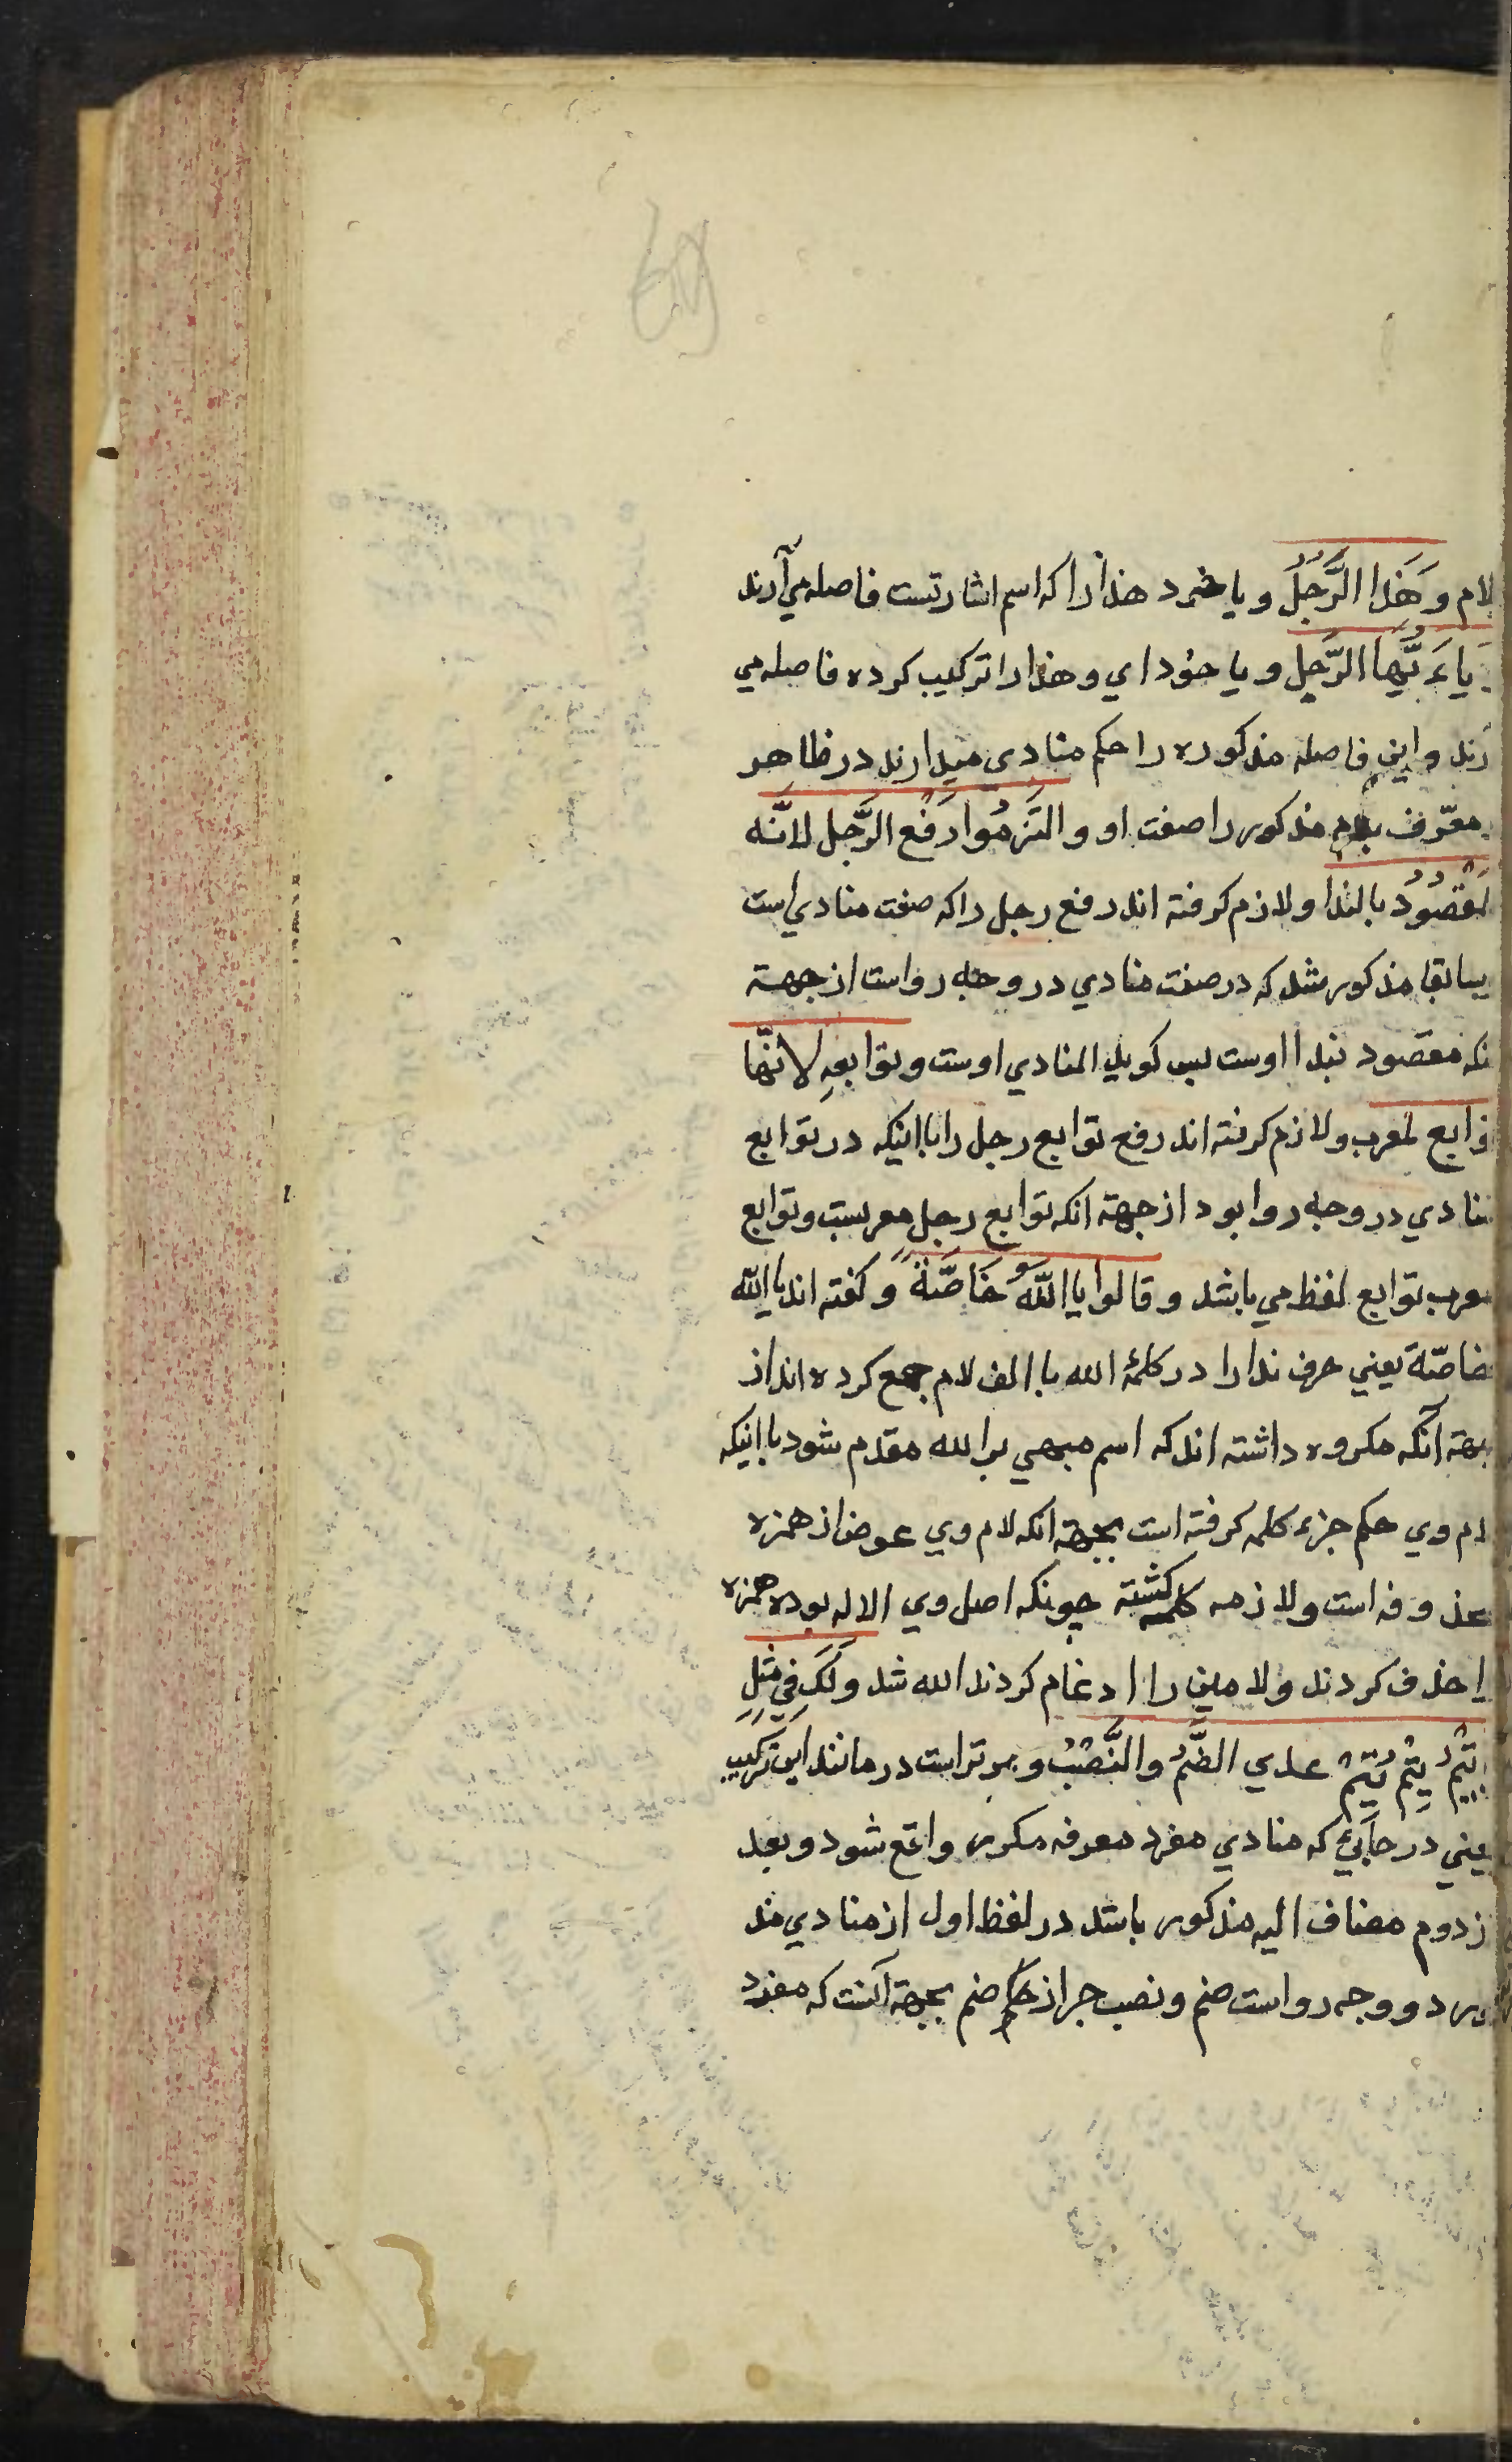 لام وَهَذا الرَّجُلُ و يا خود هذا را که اسم اشارتست فاصله مي آرند
ياءَيُّهَا الرَّجل و يا خود اي و هذا را ترکيب کرده فاصله مي
رند و اين فاصله مذکوره را حکم منادي ميدارند در ظاهر
معرّف بلام مذکور را صفت او و التَزَمُوا رَفْعَ الرَّجل لانَّه
لمقصُودُ بالندا و لازم کرفته اند رفع رجل را که صفت منادي است
سابقا مذکور شد که در صفت منادي دو وجه رواست از جهة
نکه مقصود بندا اوست پس کويا المنادي اوست و توابعهِ لانّها
توابع لمعرب و لازم کرفته اند رفع توابع رجل را با اينکه در توابع
منادي دو وجه روا بود از جهة انکه توابع رجل معربست و توابع
معرب توابع لفظ مي باشد و قالوا يا اللّه خَاصّةً و کفته اند يا الله
خاصّة يعني حرف ندا را در کلمهٔ الله با الف لام جمع کرده اند از
جهة آنکه مکروه داشته اند که اسم مبهمي بر الله مقدم شود با اينکه
لام وي حکم جزء کلمه کرفته است بجهة انکه لام وي عوض از همزه
محذوفه است و لازمه کلمه کشته چونکه اصل وي الاله بوده همزه
را حذف کردند و لامين را ادغام کردند الله شد و لَكَ فِي مِثلِ
يا تَيْمُ تَيْمَ عدي الضَّمُّ و النَّصْبُ و مر تراست در مانند اين ترکيب
يعني در جايي که منادي مفرد معرفه مکرر واقع شود و بعد
از دوم مضاف اليه مذکور باشد در لفظ اول از منادي مذ
کور دو وجه رواست ضم و نصب چرا از حکم ضم بجهة آنست که مفرد